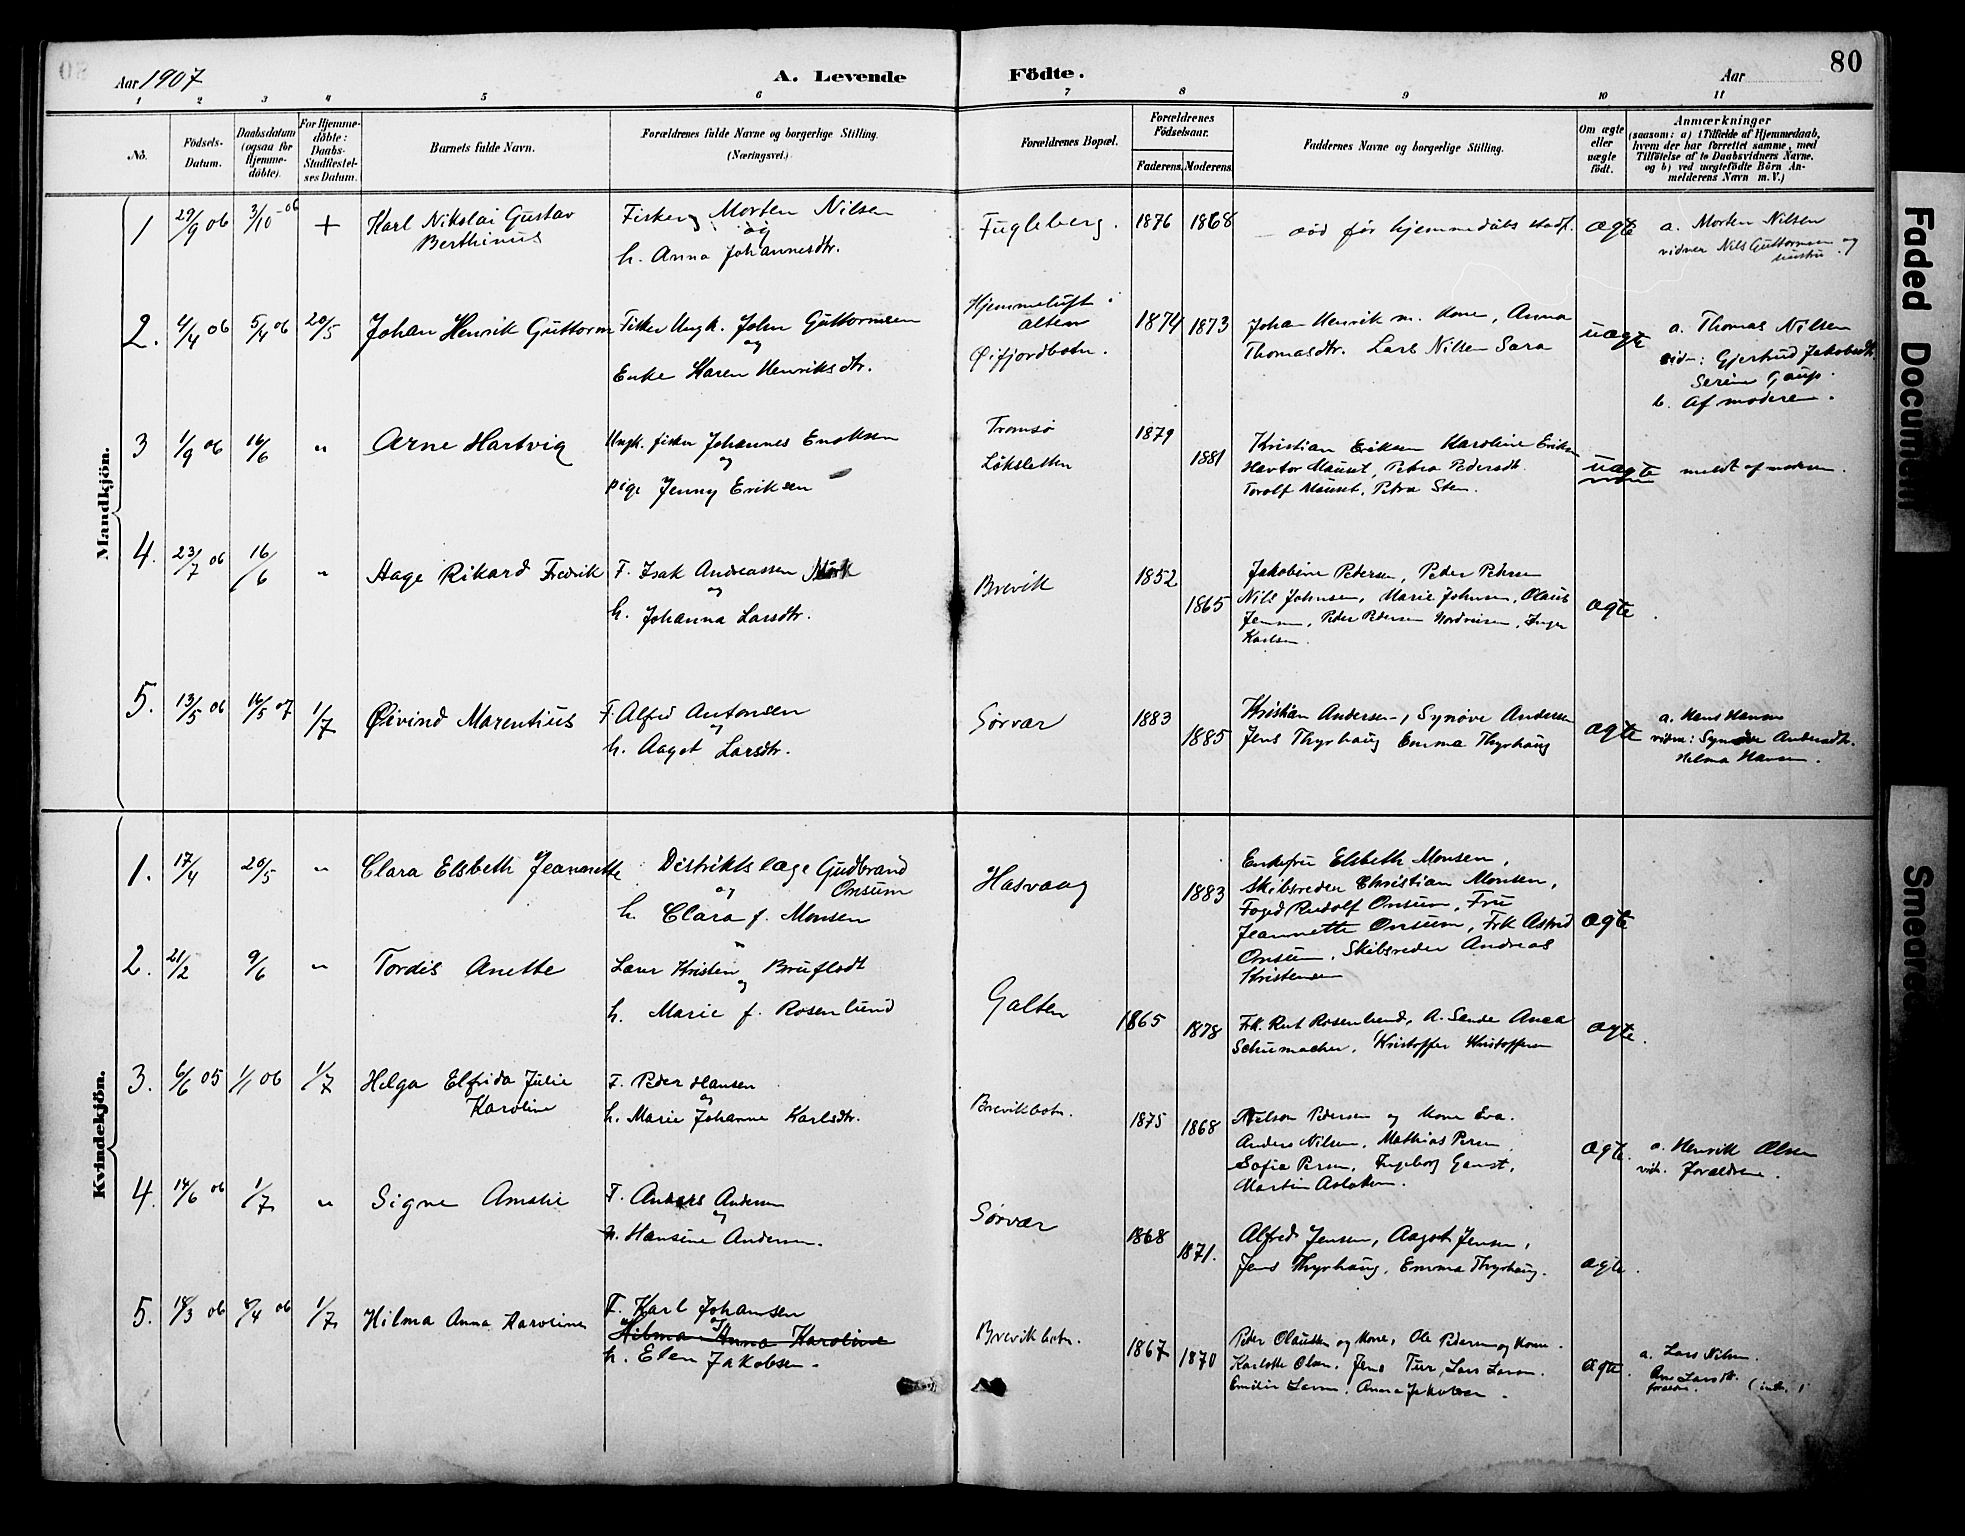 80
Aar 1907
A. Levende Födte.
Aar
1 2 3 4 5 6 7 8 9 10 11
No.
Födsels-Datum.
Daabsdatum (ogsaa for Hjemme-döbte).
For Hjemme-döbte: Daabs-Stadfæstel-ses Datum.
Barnets fulde Navn.
Forældrenes fulde Navne og borgerlige Stilling. (Næringsvei.)
Forældrenes Bopæl.
Forældrenes Födselsaar.
Faderens. Moderens.
Faddernes Navne og borgerlige Stilling.
Om ægte eller uægte födt.
Anmærkninger
(saasom: a) i Tilfælde af Hjemmedaab,
hvem der har forrettet samme, med
Tilföielse af to Daabsvidners Navne,
og b) ved uægtefödte Börn An-
melderens Navn m. V.)
Mandkjön.
1 29/9 06 3/10-06 + Karl Nikolai Gustav
Berthinus
Fisker Morten Nilsen
og
h. Anna Johannesdtr.
Fugleberg. 1876 1868
død før hjemmedåbs stadf. ægte
a. Morten Nilsen
vidner Nils Guttormsen og
hustru
2. 4/4 06 5/4 06 20/5 Johan Henrik Guttorm
Fisker Ungk. John Guttormsen
og
Enke Karen Henriksdtr.
Hjemmeluft i
alten
Øifjordbotn. 1874 1873
Johan Henrik m. Kone, Anna
Thomasdtr. Lars Nilsen Sara
uægte
a. Thomas Nilsen
vidn: Gjertrud Jakobsdtr.
Serine Gaup.
b. Af moderen.
3 1/9 06 16/6 " Arne Hartvig
Ungk. fisker Johannes Enoksen
og
pige Jenny Eriksen
Tromsø
Løksletten 1879 1881
Kristian Eriksen Karoline Eriksen
Hartor Mauset, Petra Pedersdt.
Torolf Mauset, Petra Sten.
uægte meldt af moderen.
4. 23/7 06 16/6 " Aage Rikard Fredrik
F. Isak Andreassen Mørk
og
h. Johanna Larsdtr.
Brevik 1852 1865
Jakobine Petersen, Peder Petersen
Nils Johnsen, Marie Johnsen, Olaus
Jensen, Peder Pedersen Nordvisen, Inger
Karlsen.
ægte
5. 13/5 06 16/5 07 1/7 Øivind Marentius
F. Alfred Antonsen
og
h. Aagot Larsdtr.
Sørvær 1883 1885
Kristian Andersen, Synøve Andersen
Jens Thyrhaug Emma Thyrhaug
ægte
a. Hans Hansen
vidn: Synøve Andersdtr.
Helma Hansen.
Kvindekjön.
1. 17/4 20/5 " Clara Elsbeth Jeannette
Distriktslæge Gudbrand
og Onsum
h. Clara f. Monsen
Hasvaag 1883
Enkefru Elsbeth Monsen,
Skibsreder Christian Monsen,
Foged Rudolf Onsum, Fru
Jeannette Onsum, Frk Astrid
Onsum, Skibsreder Andreas
Kristensen
ægte
2. 21/2 9/6 " Tordis Anette
Lærer Kristen Bruflodt
og
h. Marie f. Rosenlund
Galten 1865 1878
Frk. Rut Rosenlund, A. Sende Anea
Schumacher, Kristoffer Kristoffersen
ægte.
3. 6/6 05 1/1 06 1/7 Helga Elfrida Julie
Karoline
F. Peder Hansen
og
h. Marie Johanne Karlsdtr.
Brevikbotn. 1875 1868
Nelson Pedersen og Kone Eva.
Anders Nilsen, Mathias Persen
Sofie Persen, Ingeborg Ganst,
Martin Aslaksen.
ægte.
a. Henrik Olsen
vidn. forældrene.
4. 14/6 06 1/7 " Signe Amalie
F. Anders Andersen
og
h. Hansine Andersen.
Sørvær 1868 1871.
Alfred Jensen, Aagot Jensen,
Jens Thyrhaug, Emma Thyrhaug.
ægte.
5. 18/3 06 8/4 06 1/7 Hilma Anna Karoline
F. Karl Johansen
og
Hilma Anna Karoline
h. Elen Jakobsen.
Brevikbotn. 1867 1870
Peder Olausen og Kone, Ole Pedersen og Kone.
Karlotte Olsen, Jens Tur, Lars Larsen.
Emilie Larsen, Anna Jakobsen.
ægte.
a. Lars Nilsen.
Ane Larsdtr.
Faded Document
Smeared